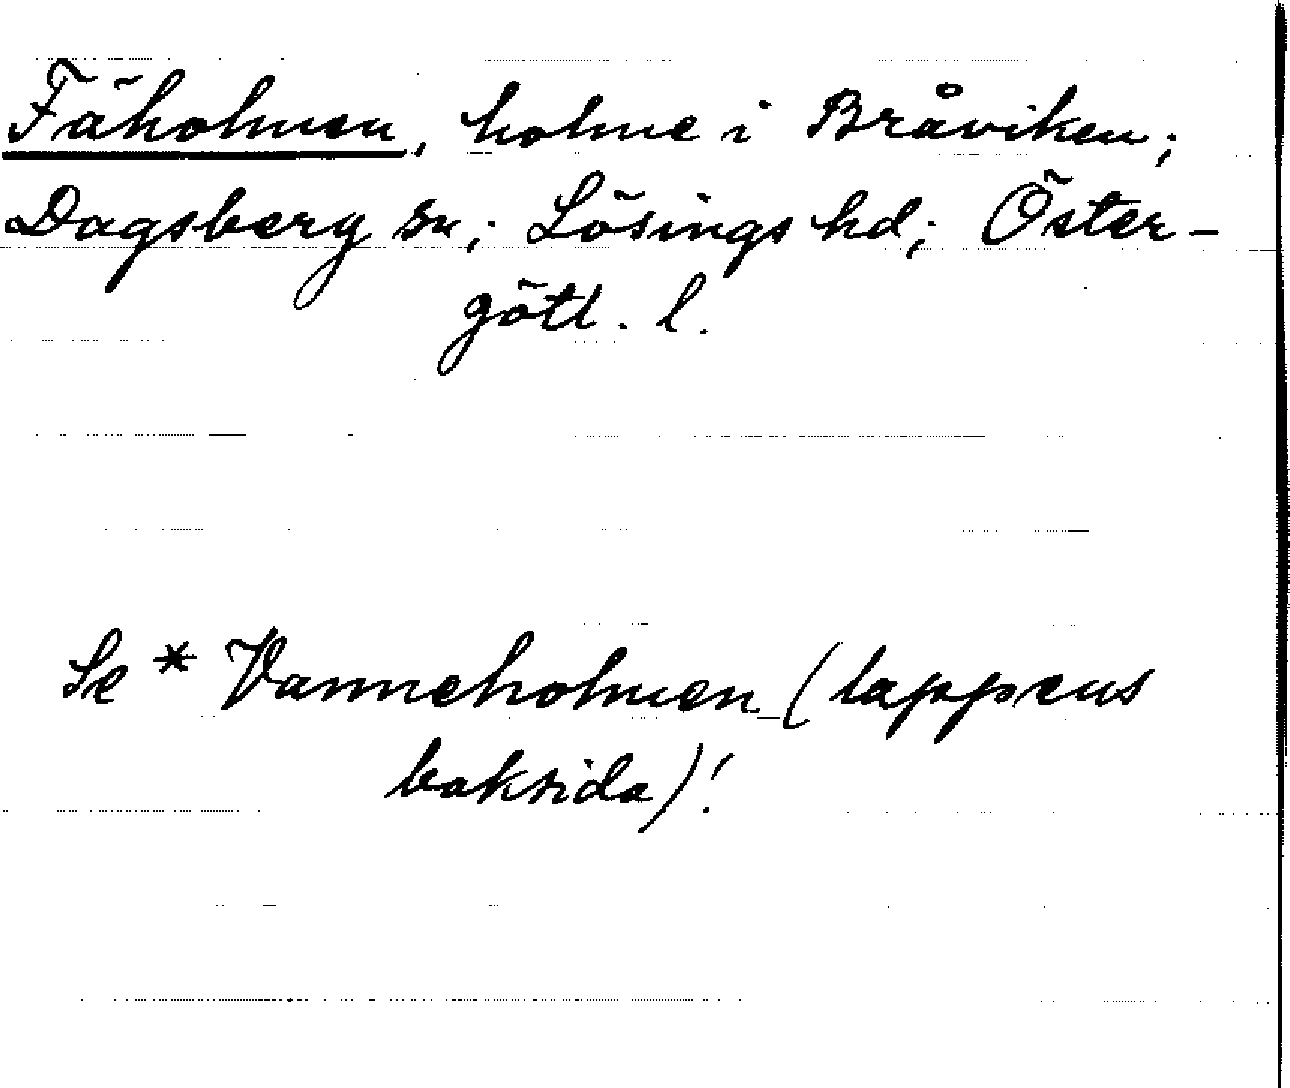 Fäholmen, holme i Bråviken;
Dagsberg sn; Lösings hd; Öster-
götl. l.
Se * Vanneholmen (lappens
baksida)!